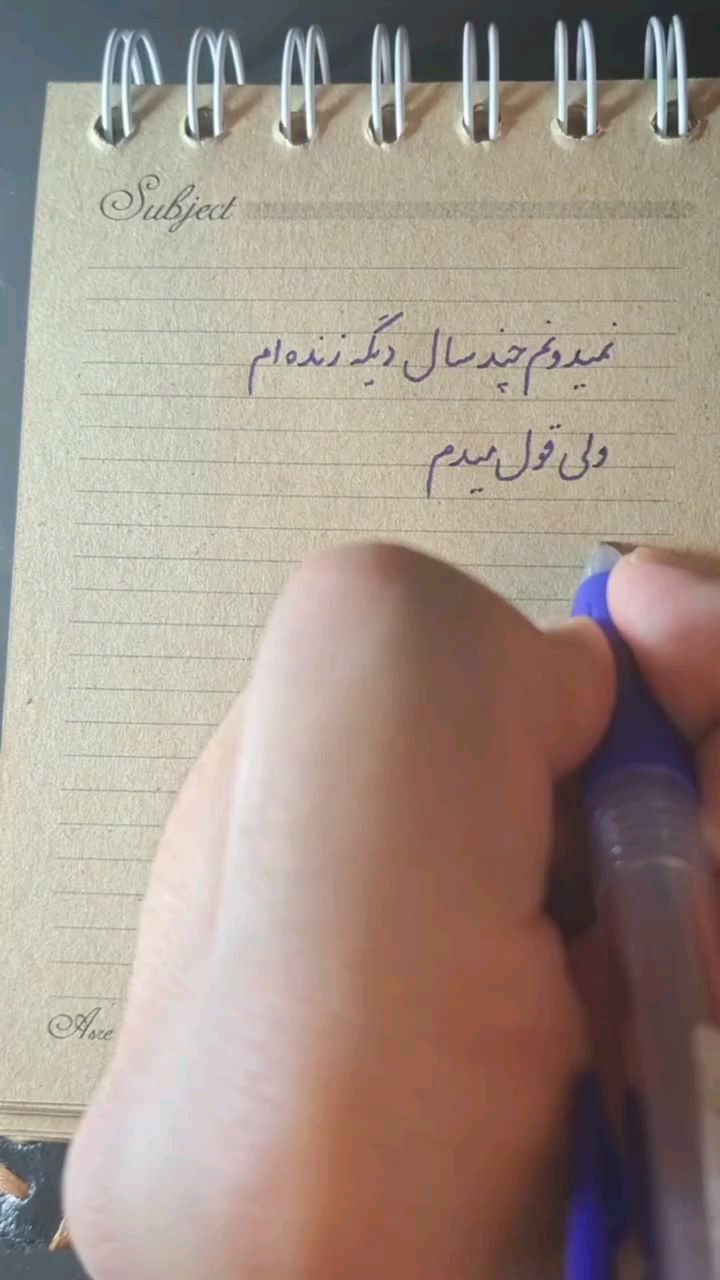 Subject
نمیدونم چند سال دیگه زنده ام
ولی قول میدم
Asre